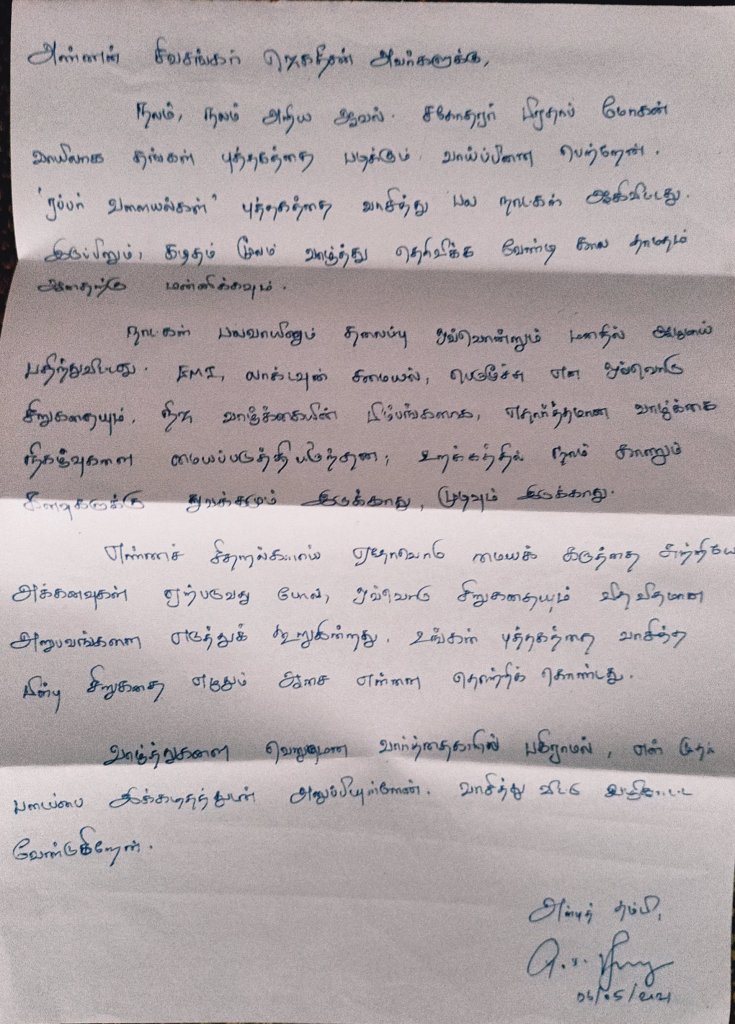 அண்ணன் சிவசங்கர் ஜெகதீசன் அவர்களுக்கு,
நலம், நலம் அறிய ஆவல். சகோதரர் பிரதாப் மோகன்
வாயிலாக தங்கள் புத்தகத்தை படிக்கும் வாய்ப்பினை பெற்றேன்.
'ரப்பர் வளையல்கள்' புத்தகத்தை வாசித்து பல நாட்கள் ஆகிவிட்டது.
இருப்பினும், கடிதம் மூலம் வாழ்த்து தெரிவிக்க வேண்டி கால தாமதம்
ஆனதற்கு மன்னிக்கவும்.
நாட்கள் பலவாயினும் தலைப்பு ஒவ்வொன்றும் மனதில் ஆழமாய்
பதிந்துவிட்டது. EMI, லாக்டவுன் சமையல், பெருமூச்சு என ஒவ்வொரு
சிறுகதையும், நிஜ வாழ்க்கையின் பிம்பங்களாக, எதார்த்தமான வாழ்க்கை
நிகழ்வுகளை மையப்படுத்தியிருந்தன; உறக்கத்தில் நாம் காணும்
கனவுகளுக்கு துவக்கமும் இருக்காது, முடிவும் இருக்காது.
எண்ணச் சிதறல்களாய் ஏதோவொரு மையக் கருத்தை சுற்றியே
அக்கனவுகள் ஏற்படுவது போல, ஒவ்வொரு சிறுகதையும் விதவிதமான
அனுபவங்களை எடுத்துக் கூறுகின்றது. உங்கள் புத்தகத்தை வாசித்த
பின்பு சிறுகதை எழுதும் ஆசை என்னை தொற்றிக் கொண்டது.
வாழ்த்துகளை வெறுமென வார்த்தைகளில் பகிராமல், என் முதல்
படைப்பை இக்கடிதத்துடன் அனுப்பியுள்ளேன். வாசித்து விட்டு வழிகாட்ட
வேண்டுகிறேன்.
அன்புத் தம்பி,
06/05/2021